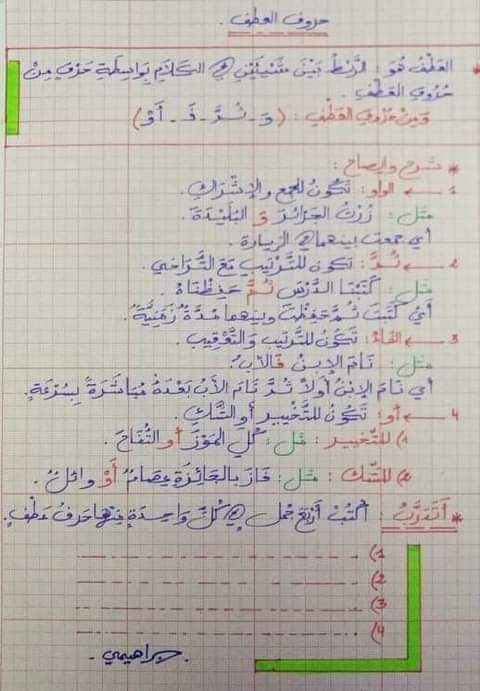 حروف العطف.
* العَطْفُ هُوَ: الرَّبْطُ بَيْنَ شَيْئَيْنِ فِي الكَلَامِ بِوَاسِطَةِ حَرْفٍ مِنْ
حُرُوفِ العَطْفِ.
وَمِنْ حُرُوفِ العَطْفِ: (وَ - ثُمَّ - فَ - أَوْ)
* شرح وإيضاح:
1 ← الواو: تَكُونُ للجمع والاشْتِرَاك.
مثل: زُرْتُ الجَزَائِرَ وَ البُلَيْدَةَ.
أي جمعت بينهما في الزيارة.
2 ← ثُمَّ: تكون للتَّرْتِيبِ مَعَ التَّرَاخي.
مثل: كَتَبْنَا الدَّرْسَ ثُمَّ حَفِظْنَاهُ.
أَيْ كَتَبْتَ ثُمَّ حَفِظْتَ وبينهما مُدَّةٌ زَمَنِيَّةٌ.
3 ← الفَاءُ: تَكُونُ للتَّرتيب وَالتَّعْقِيبِ.
مثل: نَامَ الإبنُ فَالأَبُ.
أي نَامَ الإِبْنُ أَوَّلاً ثُمَّ نَامَ الأَبُ بَعْدَهُ مُبَاشَرَةً بِسُرْعَةٍ.
4 ← أو: تَكُونُ للتَّخْيِيرِ أو الشَّكِّ.
1) للتَّخيير: مثل: كُلِ المَوْزَ أو التُّفَاحَ.
2) للشَّك: مثل: فَازَ بالجَائِزَةِ عِصَامُ أَوْ وائلُ.
* أَتَدَرَّبُ: أكْتُبُ أَرْبَعَ جُمَلٍ فِي كُلِّ وَاحِدَةٍ مِنْهَا حَرْفُ عَطْفٍ.
1)
2)
3)
4)